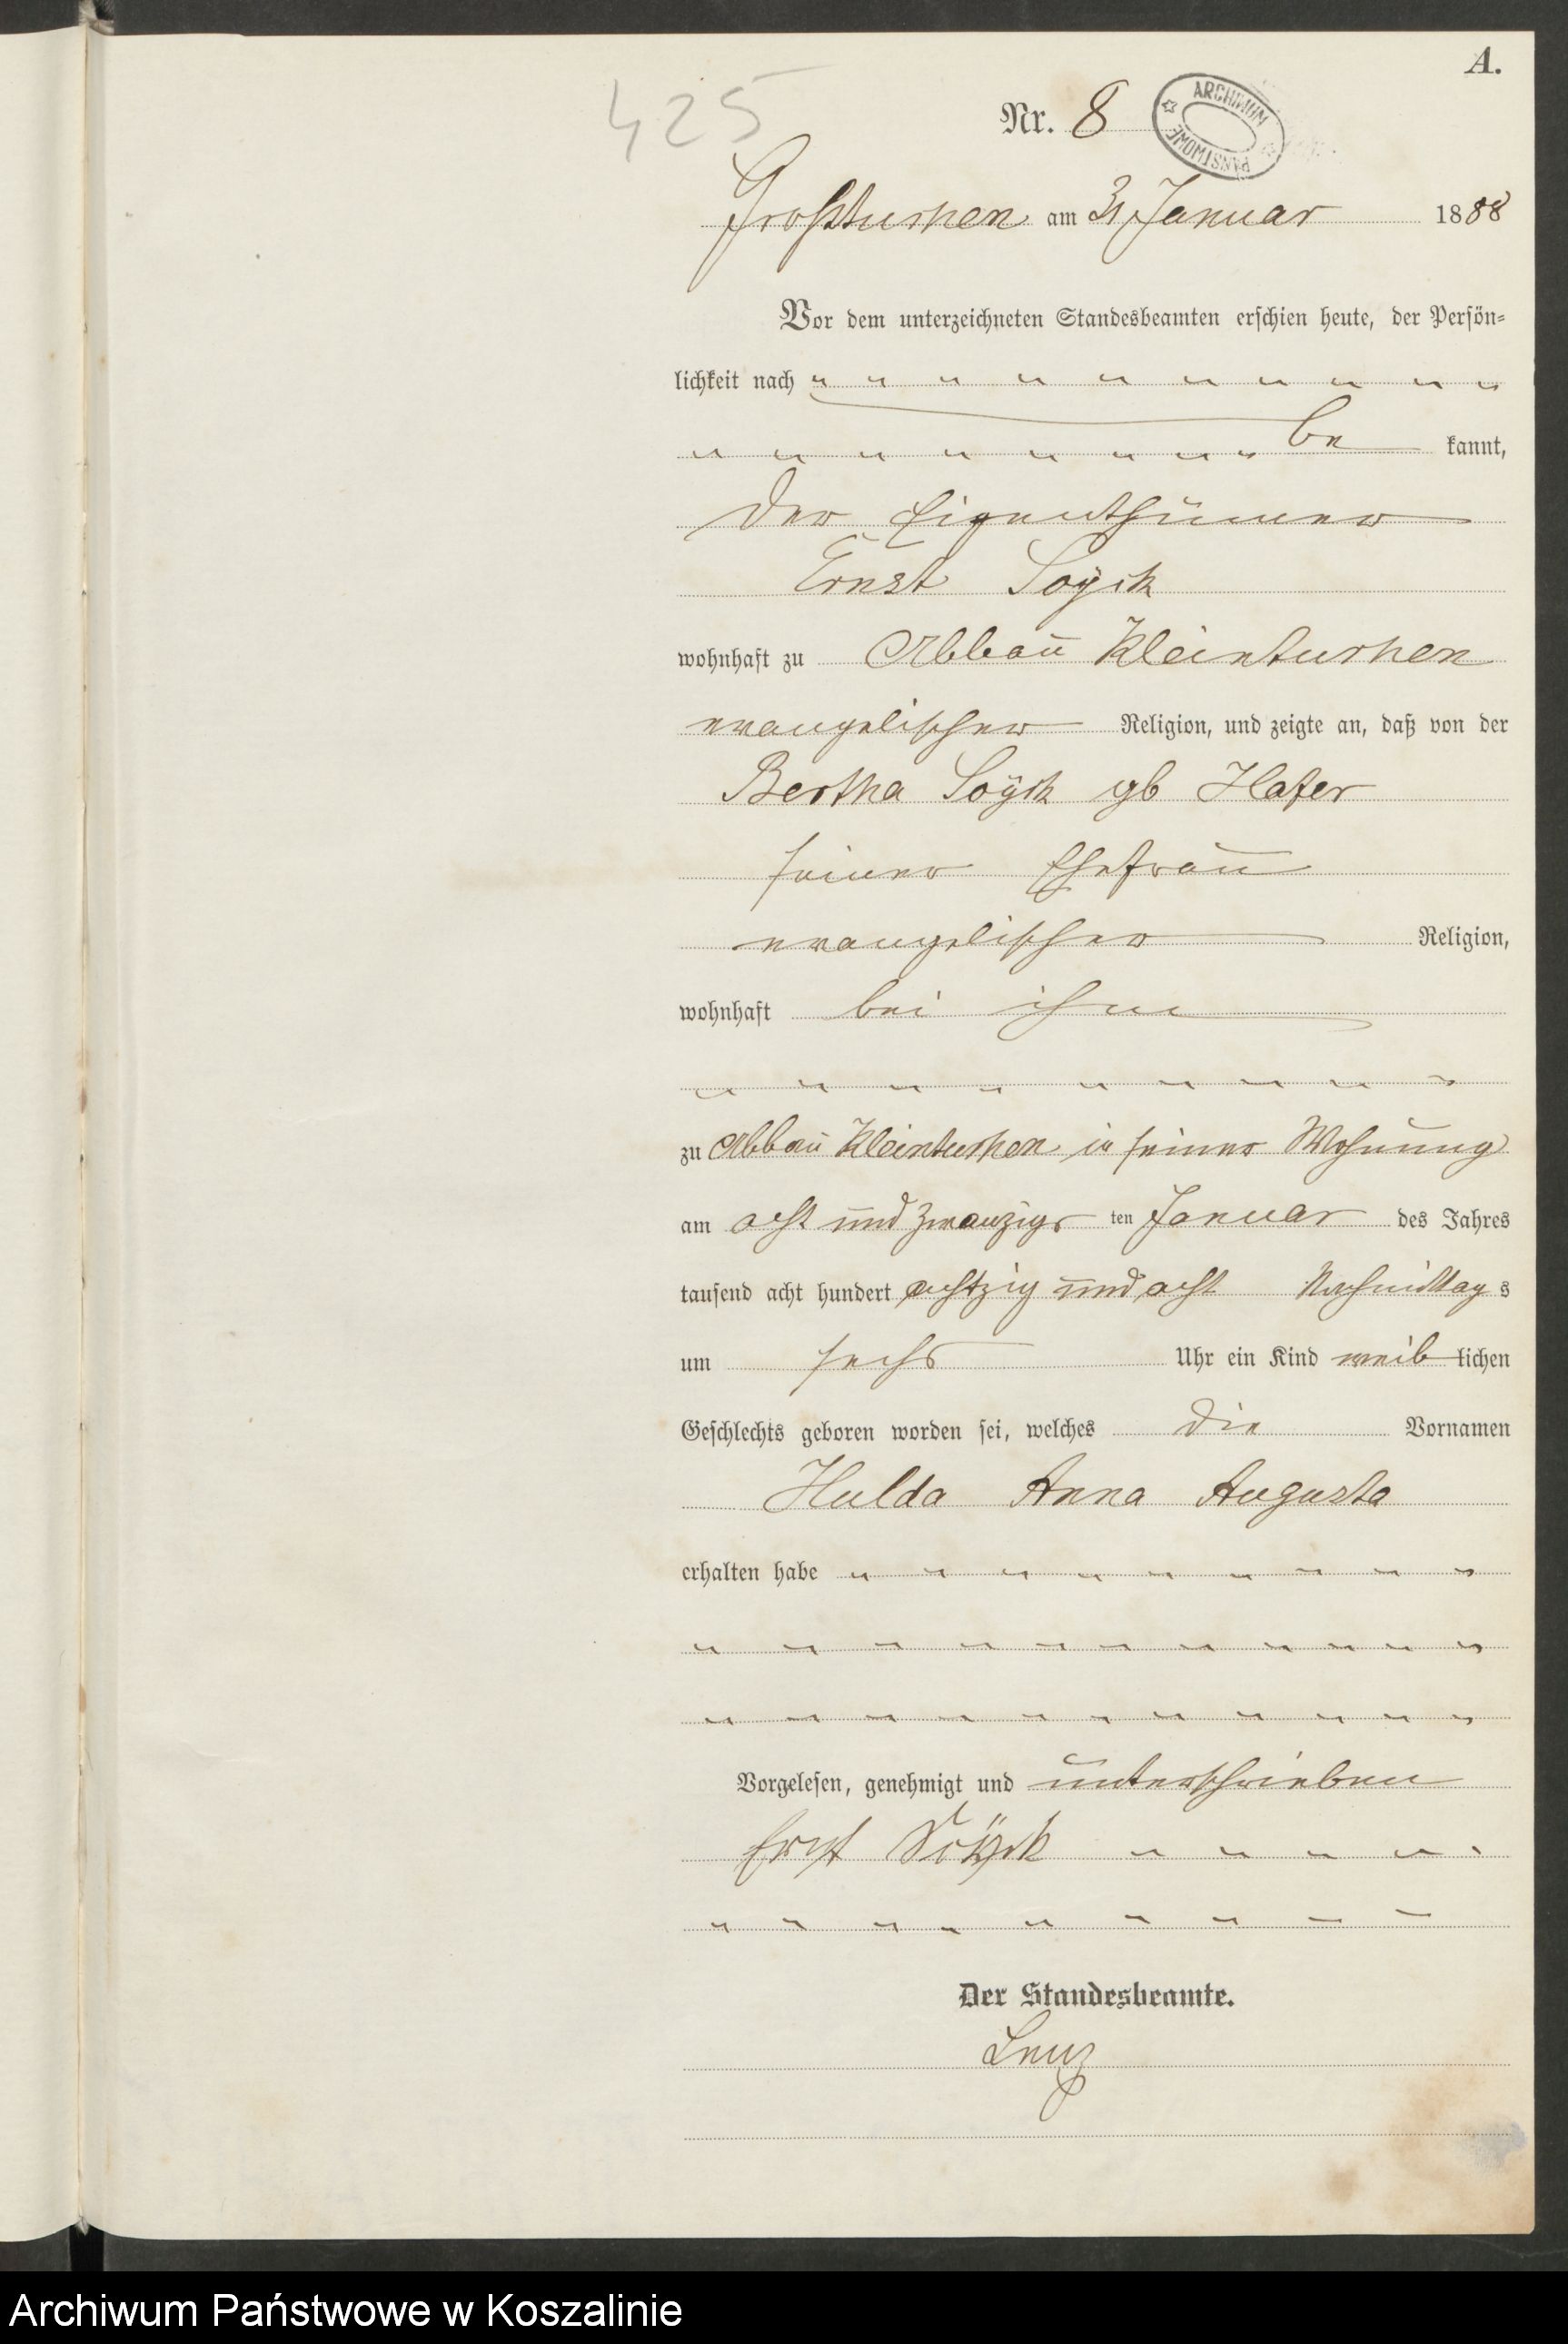 A.
425
Nr. 8
ARCHIWUM PAŃSTWOWE
Großtuchen am 31 Januar 1888
Vor dem unterzeichneten Standesbeamten erschien heute, der Persön-
lichkeit nach
be kannt,
der Eigenthümer
Ernst
wohnhaft zu Abbau Kleintuchen
evangelischer Religion, und zeigte an, daß von der
Bertha gb Hafer
seiner Ehefrau
evangelischer Religion,
wohnhaft bei ihm
zu Abbau Kleintuchen in seiner Wohnung
am acht und zwanzigs ten Januar des Jahres
tausend acht hundert achtzig und acht Nachmittag s
um sechs Uhr ein Kind weib lichen
Geschlechts geboren worden sei, welches die Vornamen
Hulda Anna Augusta
erhalten habe
Vorgelesen, genehmigt und unterschrieben
Ernst
Der Standesbeamte.
Lenz
Archiwum Państwowe w Koszalinie